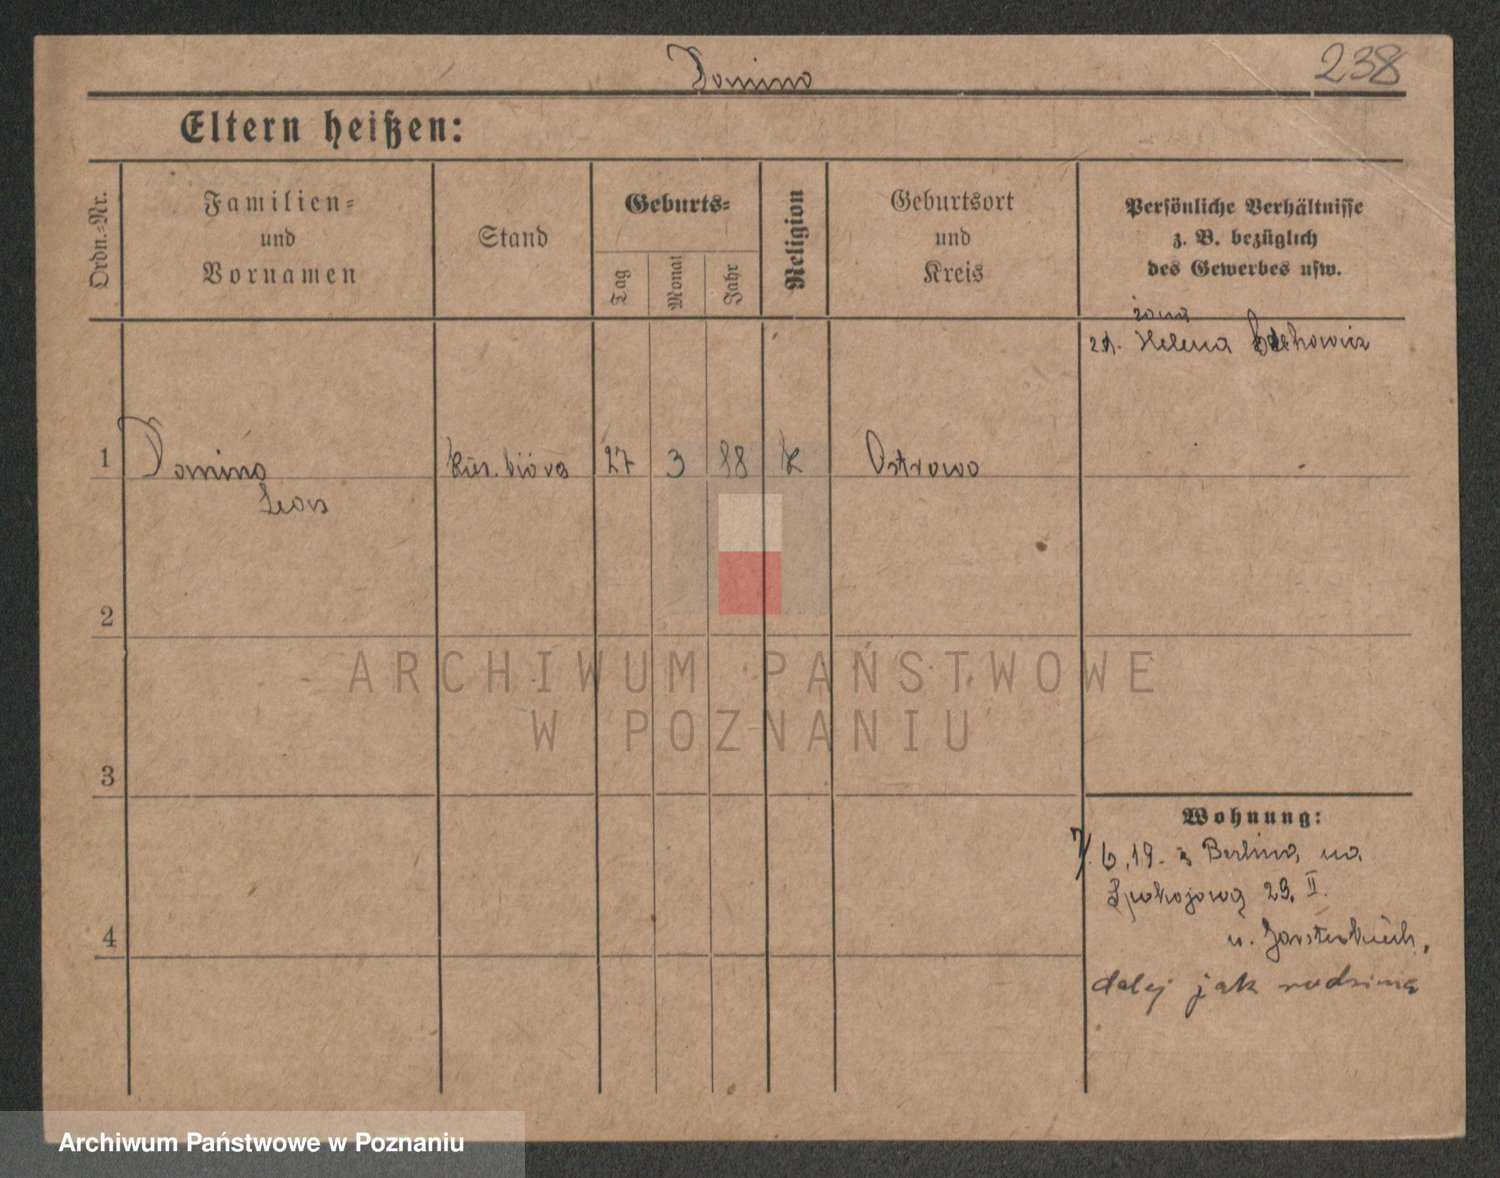 Domino
238
Eltern heißen:
Ordn.-Nr.
Familien-
und
Vornamen
Stand
Geburts-
Tag
Monat
Jahr
Religion
Geburtsort
und
Kreis
Persönliche Verhältnisse
z. B. bezüglich
des Gewerbes usw.
żona
Helena
1
Domino
27
3
88
K
Ostrowo
Leon
2
ARCHIWUM PAŃSTWOWE
W POZNANIU
3
Wohnung:
7/.6.19. z Berlina, na
Spokojową 29. II.
u.
4
dalej jak rodzina
Archiwum Państwowe w Poznaniu